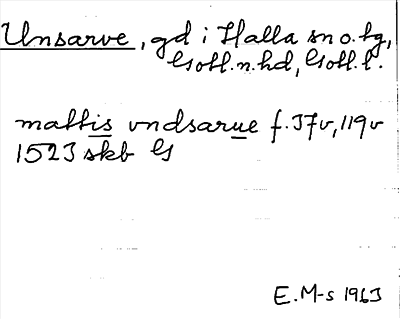 Unsarve, gd i Halla sn o. tg,
Gotl. n. hd, Gotl. l.
mattis vndsarue f. 37v, 119v
1523 skb G
E. M-s 1963